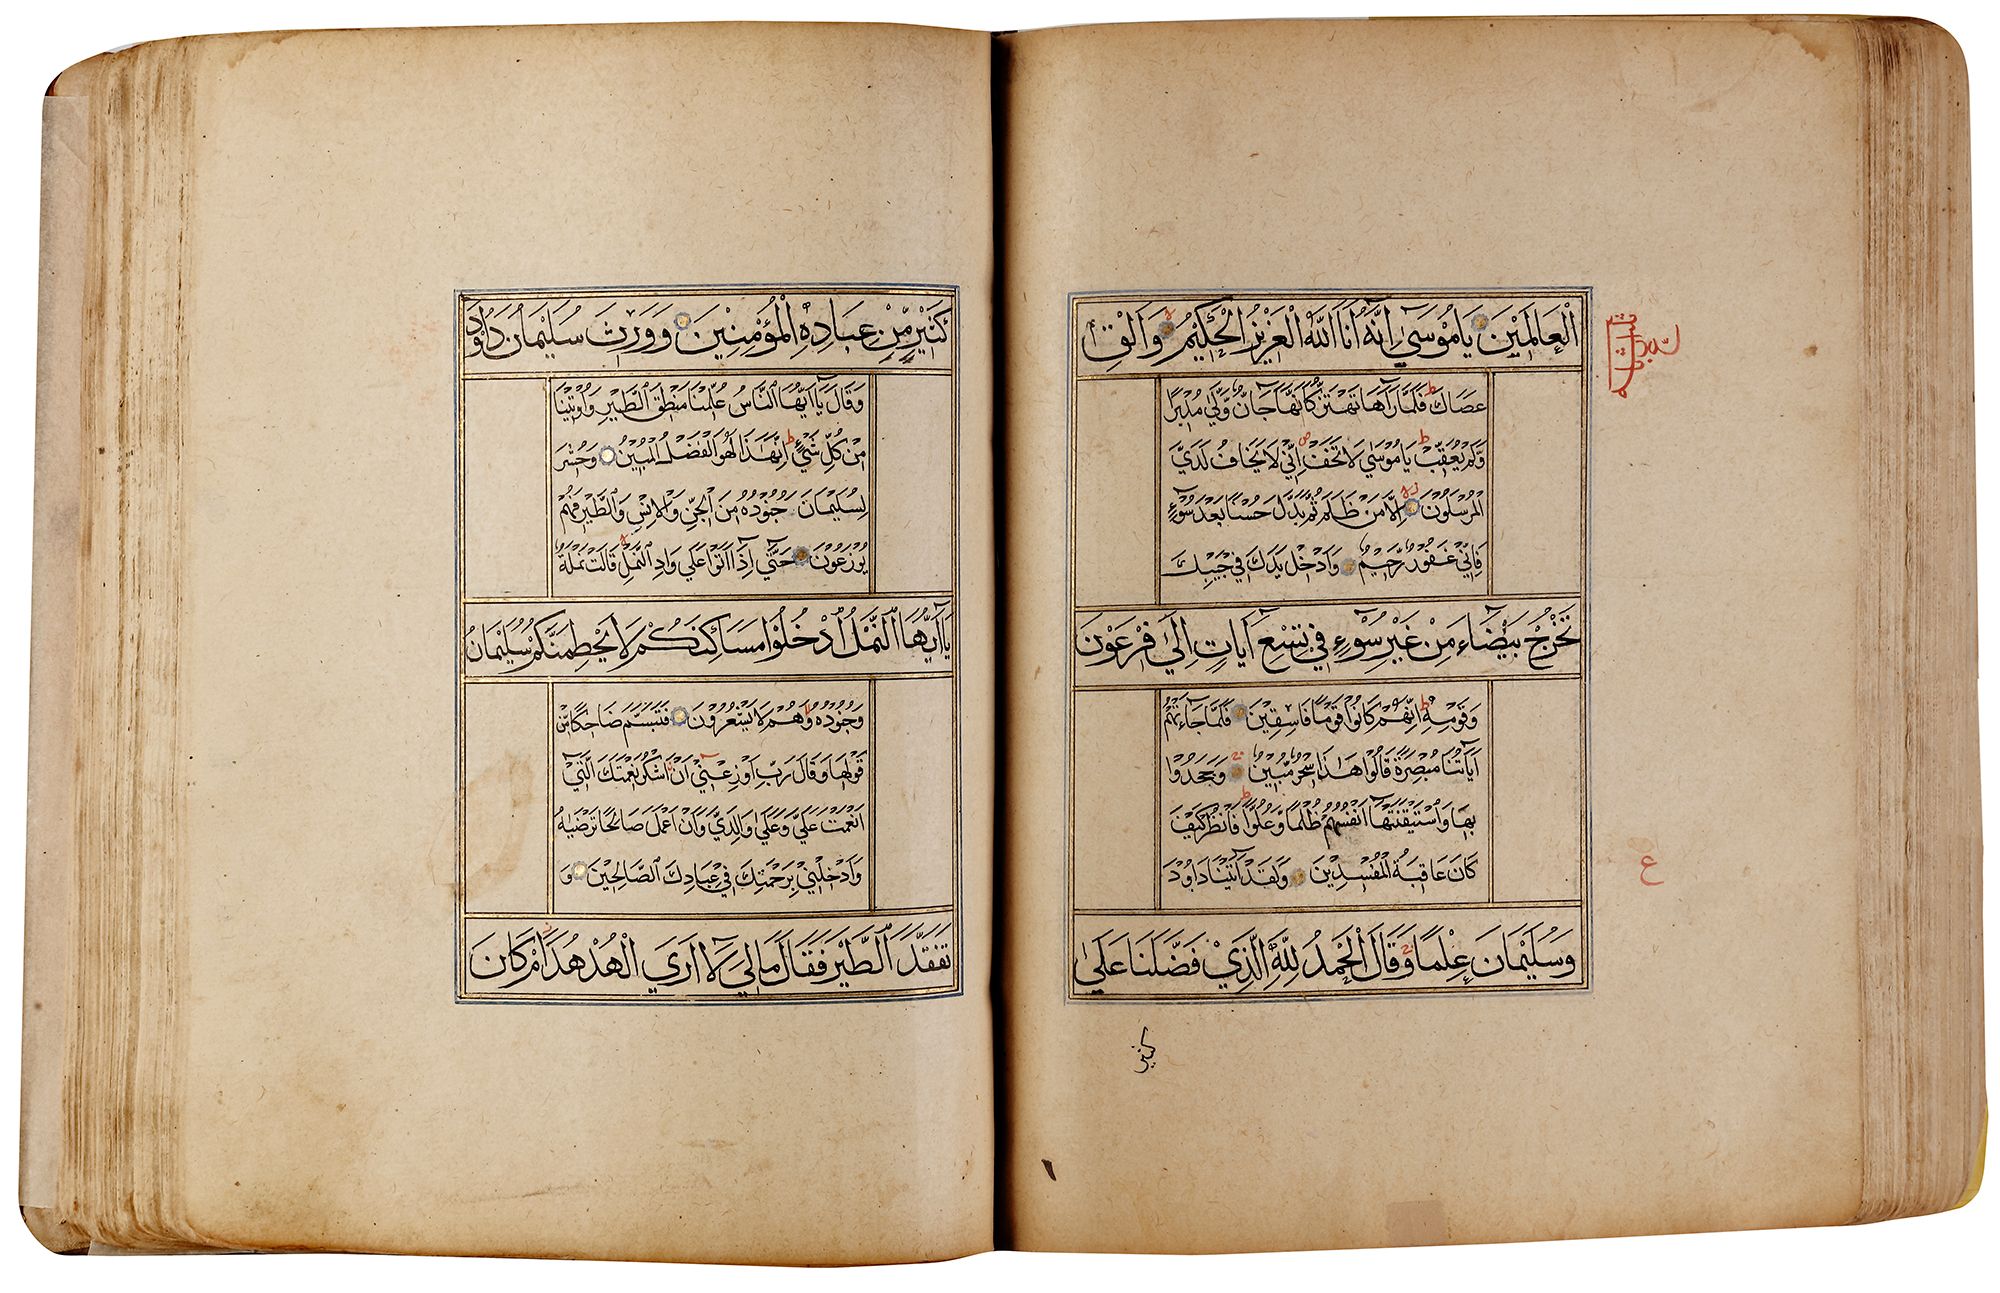 الْعَالَمِيْنَ يَا مُوْسَىٰ اِنَّهٗ اَنَا اللّٰهُ الْعَزِيْزُ الْحَكِيْمُ وَاَلْقِ
عَصَاكَ فَلَمَّا رَاٰهَا تَهْتَزُّ كَاَنَّهَا جَانٌّ وَّلّٰى مُدْبِرًا
وَّلَمْ يُعَقِّبْ يَا مُوْسٰى لَا تَخَفْ اِنِّيْ لَا يَخَافُ لَدَيَّ
الْمُرْسَلُوْنَ اِلَّا مَنْ ظَلَمَ ثُمَّ بَدَّلَ حُسْنًا بَعْدَ سُوْءٍ
فَاِنِّيْ غَفُوْرٌ رَّحِيْمٌ وَاَدْخِلْ يَدَكَ فِيْ جَيْبِكَ
تَخْرُجْ بَيْضَاءَ مِنْ غَيْرِ سُوْءٍ فِيْ تِسْعِ اٰيَاتٍ اِلٰى فِرْعَوْنَ
وَقَوْمِهٖ اِنَّهُمْ كَانُوْا قَوْمًا فَاسِقِيْنَ فَلَمَّا جَاءَتْهُمْ
اٰيَاتُنَا مُبْصِرَةً قَالُوْا هٰذَا سِحْرٌ مُّبِيْنٌ وَجَحَدُوْا
بِهَا وَاسْتَيْقَنَتْهَا اَنْفُسُهُمْ ظُلْمًا وَّعُلُوًّا فَانْظُرْ كَيْفَ
كَانَ عَاقِبَةُ الْمُفْسِدِيْنَ وَلَقَدْ اٰتَيْنَا دَاوٗدَ
وَسُلَيْمَانَ عِلْمًا وَقَالَا الْحَمْدُ لِلّٰهِ الَّذِيْ فَضَّلَنَا عَلٰى
كثير
ع
كَثِيْرٍ مِّنْ عِبَادِهِ الْمُؤْمِنِيْنَ وَوَرِثَ سُلَيْمَانُ دَاوٗدَ
وَقَالَ يَا اَيُّهَا النَّاسُ عُلِّمْنَا مَنْطِقَ الطَّيْرِ وَاُوْتِيْنَا
مِنْ كُلِّ شَيْءٍ اِنَّ هٰذَا لَهُوَ الْفَضْلُ الْمُبِيْنُ وَحُشِرَ
لِسُلَيْمَانَ جُنُوْدُهٗ مِنَ الْجِنِّ وَالْاِنْسِ وَالطَّيْرِ فَهُمْ
يُوْزَعُوْنَ حَتّٰى اِذَا اَتَوْا عَلٰى وَادِ النَّمْلِ قَالَتْ نَمْلَةٌ
يَا اَيُّهَا النَّمْلُ ادْخُلُوْا مَسَاكِنَكُمْ لَا يَحْطِمَنَّكُمْ سُلَيْمَانُ
وَجُنُوْدُهٗ وَهُمْ لَا يَشْعُرُوْنَ فَتَبَسَّمَ ضَاحِكًا مِّنْ
قَوْلِهَا وَقَالَ رَبِّ اَوْزِعْنِيْ اَنْ اَشْكُرَ نِعْمَتَكَ الَّتِيْ
اَنْعَمْتَ عَلَيَّ وَعَلٰى وَالِدَيَّ وَاَنْ اَعْمَلَ صَالِحًا تَرْضٰيهُ
وَاَدْخِلْنِيْ بِرَحْمَتِكَ فِيْ عِبَادِكَ الصَّالِحِيْنَ وَ
تَفَقَّدَ الطَّيْرَ فَقَالَ مَا لِيَ لَا اَرَى الْهُدْهُدَ اَمْ كَانَ